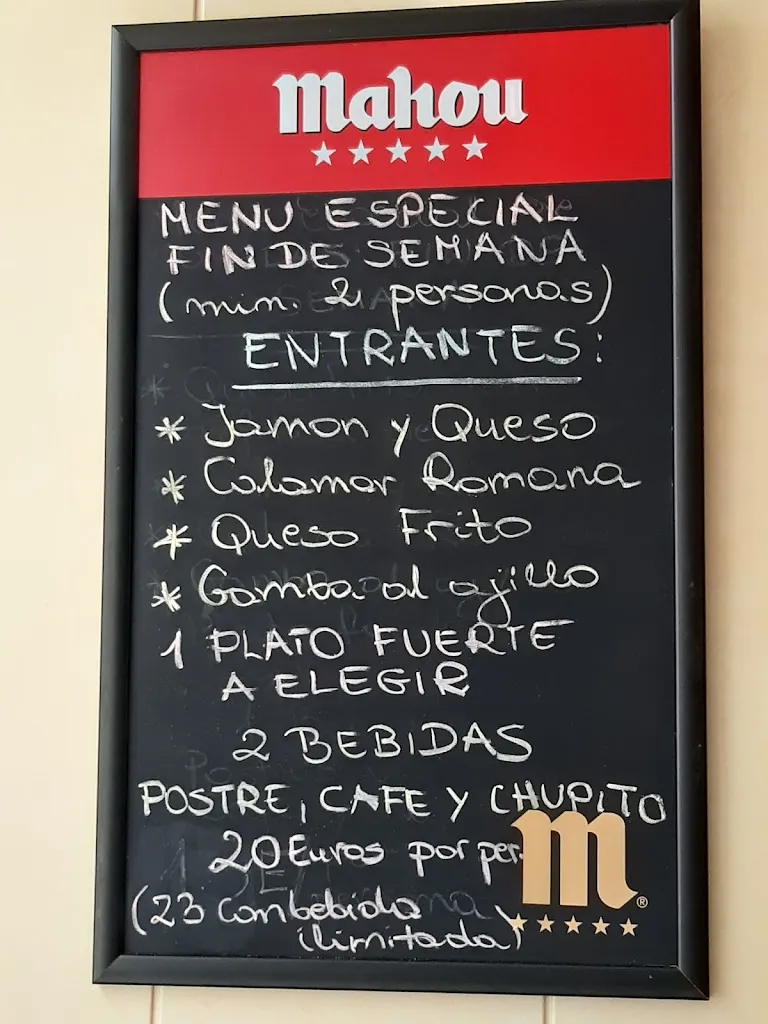 Mahou
MENU ESPECIAL
FIN DE SEMANA
(min. 2 personas)
ENTRANTES:
* Jamon y Queso
* Calamar Romana
* Queso Frito
* Gamba al ajillo
1 PLATO FUERTE
A ELEGIR
2 BEBIDAS
POSTRE, CAFE Y CHUPITO
20 Euros por per.
(23 con bebida
ilimitada)
m
®